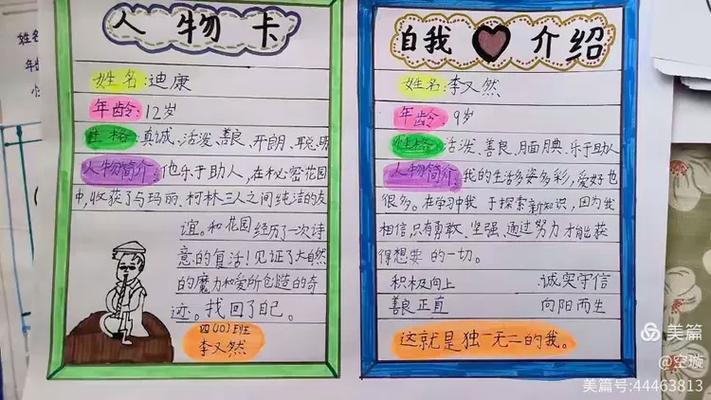 人物卡
姓名:迪康
年龄:12岁
性格:真诚、活泼、善良、开朗、聪明
人物简介:他乐于助人,在秘密花园
中,收获了与玛丽、柯林三人之间纯洁的友
谊。和花园经历了一次诗
意的复活!见证了大自然
的魔力和爱所创造的奇
迹。找回了自己。
四(4)班
李又然
自我介绍
姓名:李又然
年龄:9岁
性格:活泼、善良、腼腆、乐于助人
人物简介:我的生活多姿多彩,爱好也
很多。在学习中我 于探索新知识,因为我
相信,只有勇敢、坚强、通过努力才能获
得想要的一切。
积极向上 诚实守信
善良正直 向阳而生
这就是独一无二的我。
姓名
年龄
美篇
@空璇
美篇号:44463813